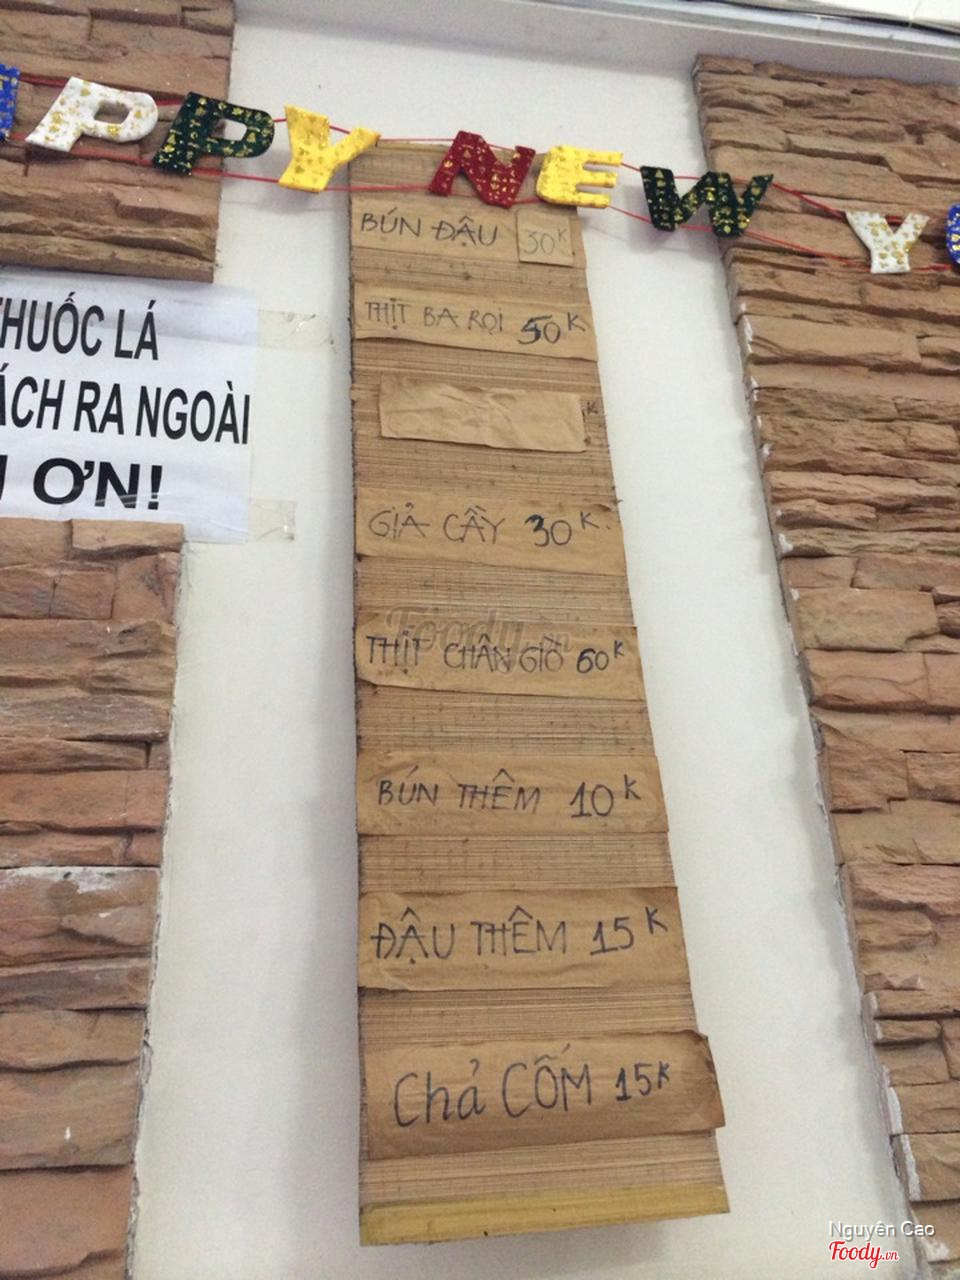 PPY NEW Y
THUỐC LÁ
ÁCH RA NGOÀI
ƠN!
BÚN ĐẬU 30K
THỊT BA RỌI 50K
K
GIẢ CẦY 30K.
Foody.vn
THỊT CHÂN GIÒ 60K
BÚN THÊM 10K
ĐẬU THÊM 15K
Chả CỐM 15K
Nguyên Cao
Foody.vn